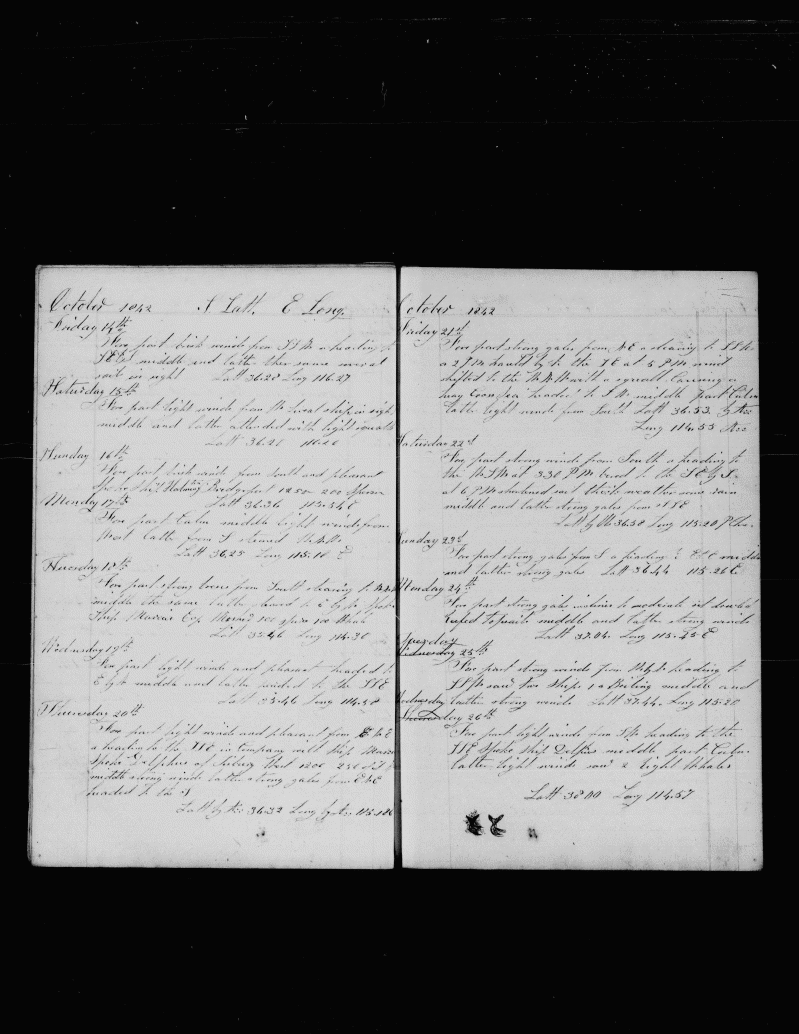 October 1842 S Latt. E Long.
Friday 14th
Fore part brisk winds from SSW a heading to
SEBS middle and latter the same several
sails in sight Latt 36.28 Long 116.27
Saturday 15th
Fore part light winds from W Several ships in sight
middle and latter attended with light squalls
Latt 36.20 116.20
Sunday 16th
Fore part brisk winds from South and pleasant
Spoke Ship Bridgeport 1250 200 Sperm
Monday 17th Latt 36.36 115.54 E
Fore part Calm middle light winds from
West latter from S steered
Latt 36.25 Long 115.10 E
Tuesday 18th
Fore part strong breese from South steering to
middle the same latter headed to E by S Spoke
Ship Marcus 100 Sperm 100 Whale
Latt 35.46 Long 114.30
Wednesday 19th
Fore part light winds and pleasant headed to
E by S middle and latter headed to the SSE
Latt 35.46 Long 114.58
Thursday 20th
Fore part light winds and pleasant from E b E
a heading to the SSE in company with Ship Marcus
Spoke Delphos of 1200 250
middle strong winds latter strong gales from E b E
headed to the S
Latt by Acc 36.32 Long by Acc 115.18 E
October 1842
Friday 21st
Fore part strong gales from NE a steering to SSW
a 2 PM hauld by to the SE at 5 PM wind
shifted to the with a squall Carrying a
heavy headed to SW middle part Calm
latter light winds from South Latt 36.53 by Acc
Long 114.55 Acc
Saturday 22d
Fore part strong winds from South a heading to
the WSW at 3.30 PM to the SE by S
at 6 PM shortened sail thick weather some rain
middle and latter strong gales from SSE
Latt by Ob 36.50 Long 115.20 P Chr
Sunday 23d
Fore part strong gales from S a heading E middle
and latter strong gales Latt 36.44 115.26 E
Monday 24th
Fore part strong gales inclines to moderate set double
Reefed Topsails middle and latter strong winds
Latt 37.04 Long 115.45 E
Tuesday
Wednesday 25th
Fore part strong winds from heading to
SSW saw four Ships 1 a Boiling middle and
Wednesday latter strong winds Latt 37.44 Long 115.20
Thursday 26th
Fore part light winds from SW heading to the
SSE Spoke Ship Delphos middle part Calm
latter light winds saw 2 light Whales
Latt 38.00 Long 114.57